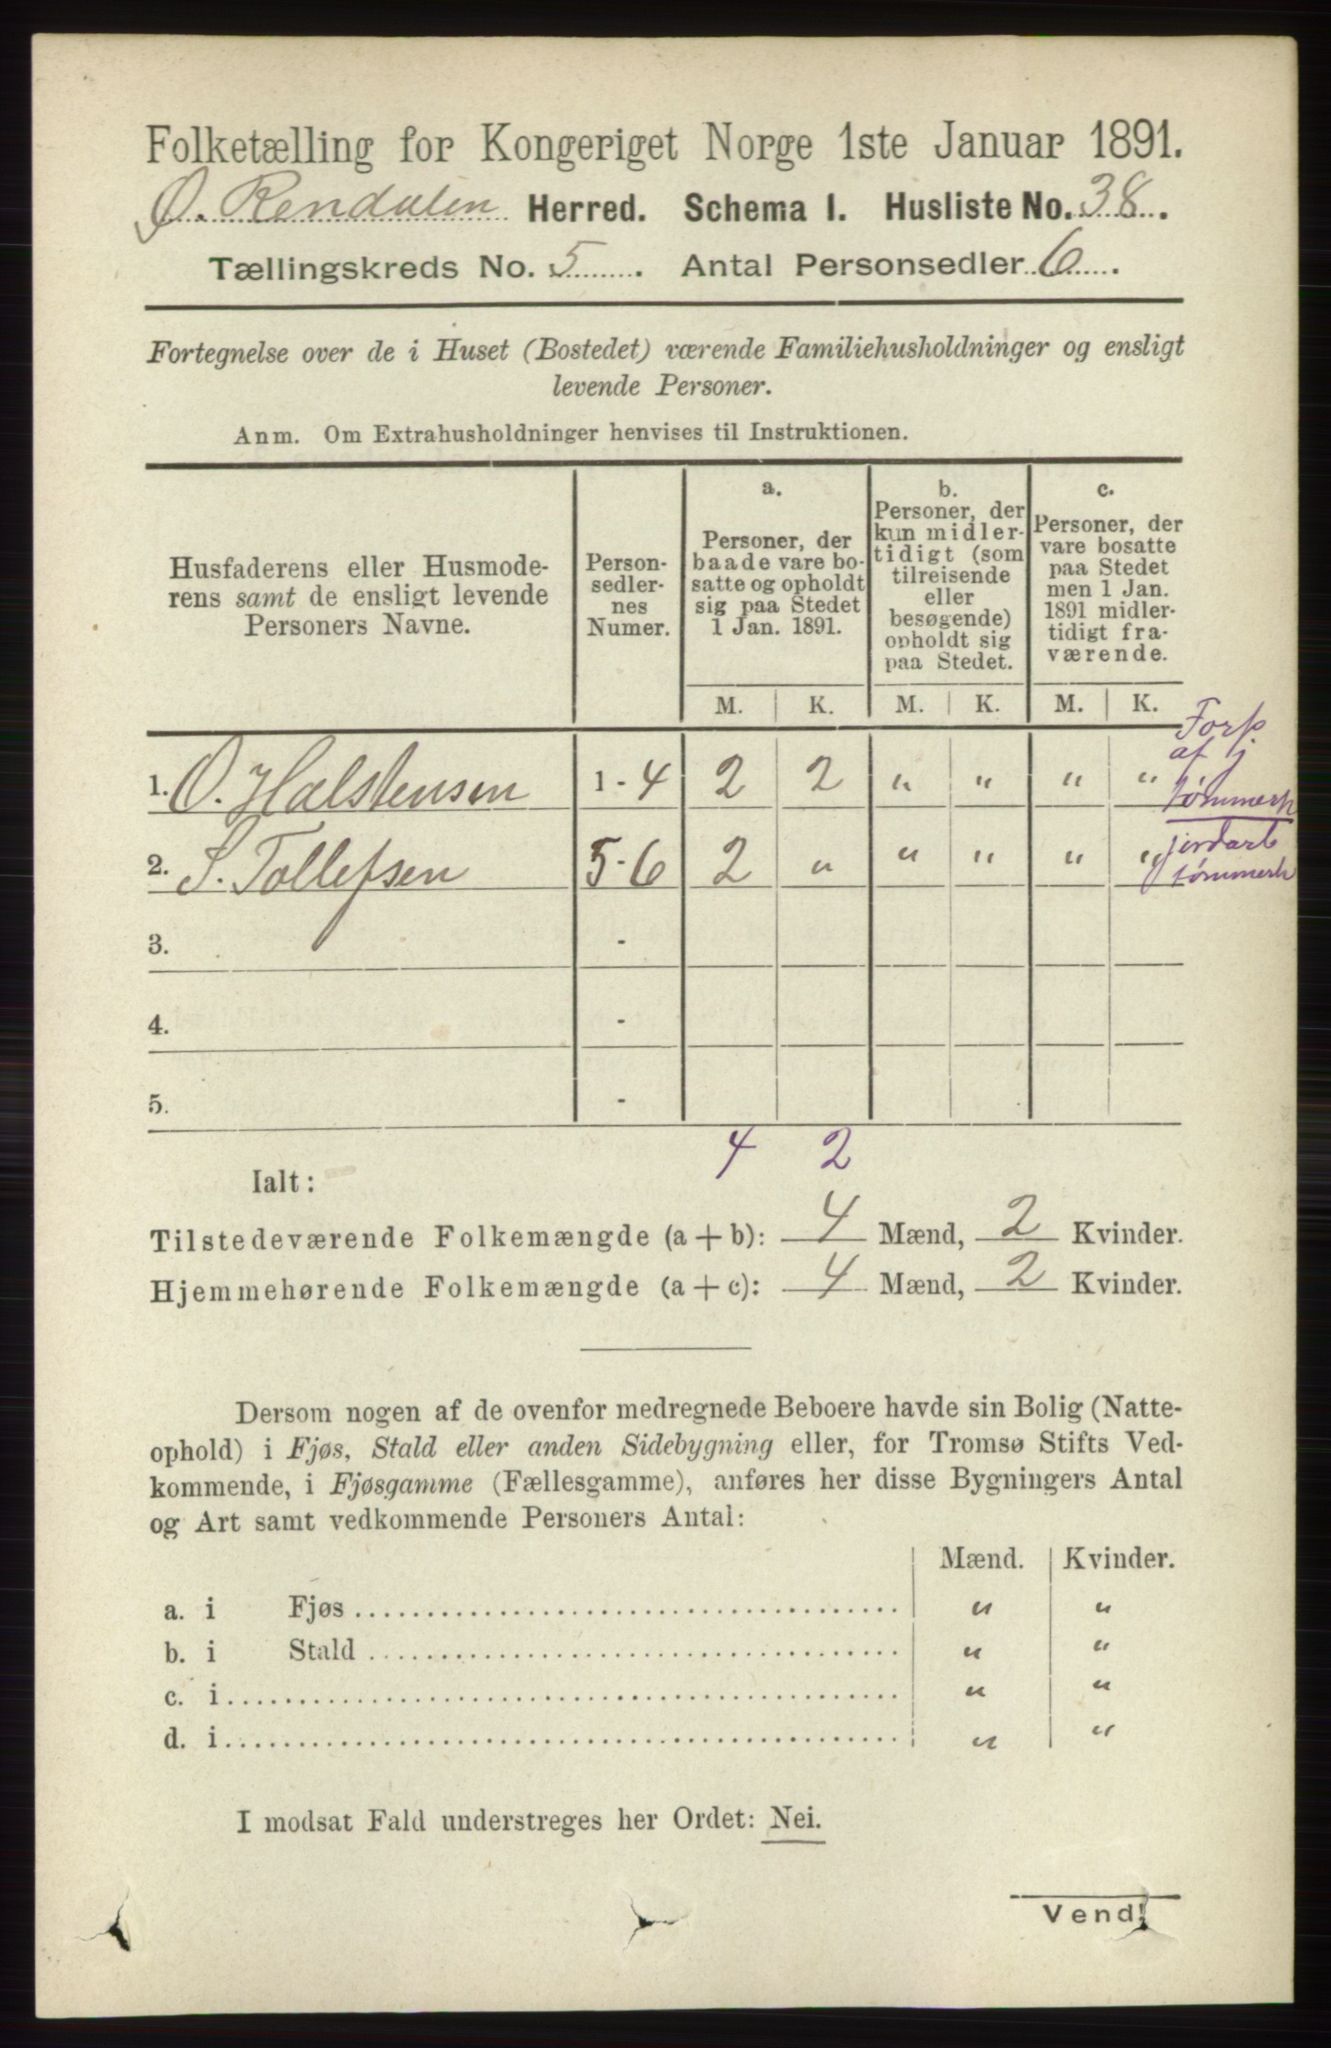 Folketælling for Kongeriget Norge 1ste Januar 1891.
Ø. Rendalen Herred. Schema I. Husliste No. 38.
Tællingskreds No. 5. Antal Personsedler 6.
Fortegnelse over de i Huset (Bostedet) værende Familiehusholdninger og ensligt
levende Personer.
Anm. Om Extrahusholdninger henvises til Instruktionen.
Husfaderens eller Husmode-
rens samt de ensligt levende
Personers Navne.
Person-
sedler-
nes
Numer.
a.
Personer, der
baade vare bo-
satte og opholdt
sig paa Stedet
1 Jan. 1891.
b.
Personer, der
kun midler-
tidigt (som
tilreisende
eller
besøgende)
opholdt sig
paa Stedet.
c.
Personer, der
vare bosatte
paa Stedet
men 1 Jan.
1891 midler-
tidigt fra-
værende.
M. K. M. K. M. K.
Forp
af j
tømmerh
1. O. Halstensen 1 - 4 2 2 " " " "
jordarb
tømmerh
2. S. Tollefsen 5 - 6 2 " " " " "
3. -
4. -
5. -
4 2
Ialt:
Tilstedeværende Folkemængde (a + b): 4 Mænd, 2 Kvinder.
Hjemmehørende Folkemængde (a + c): 4 Mænd, 2 Kvinder.
Dersom nogen af de ovenfor medregnede Beboere havde sin Bolig (Natte-
ophold) i Fjøs, Stald eller anden Sidebygning eller, for Tromsø Stifts Ved-
kommende, i Fjøsgamme (Fællesgamme), anføres her disse Bygningers Antal
og Art samt vedkommende Personers Antal:
Mænd. Kvinder.
a. i Fjøs " "
b. i Stald " "
c. i " "
d. i " "
I modsat Fald understreges her Ordet: Nei.
Vend!